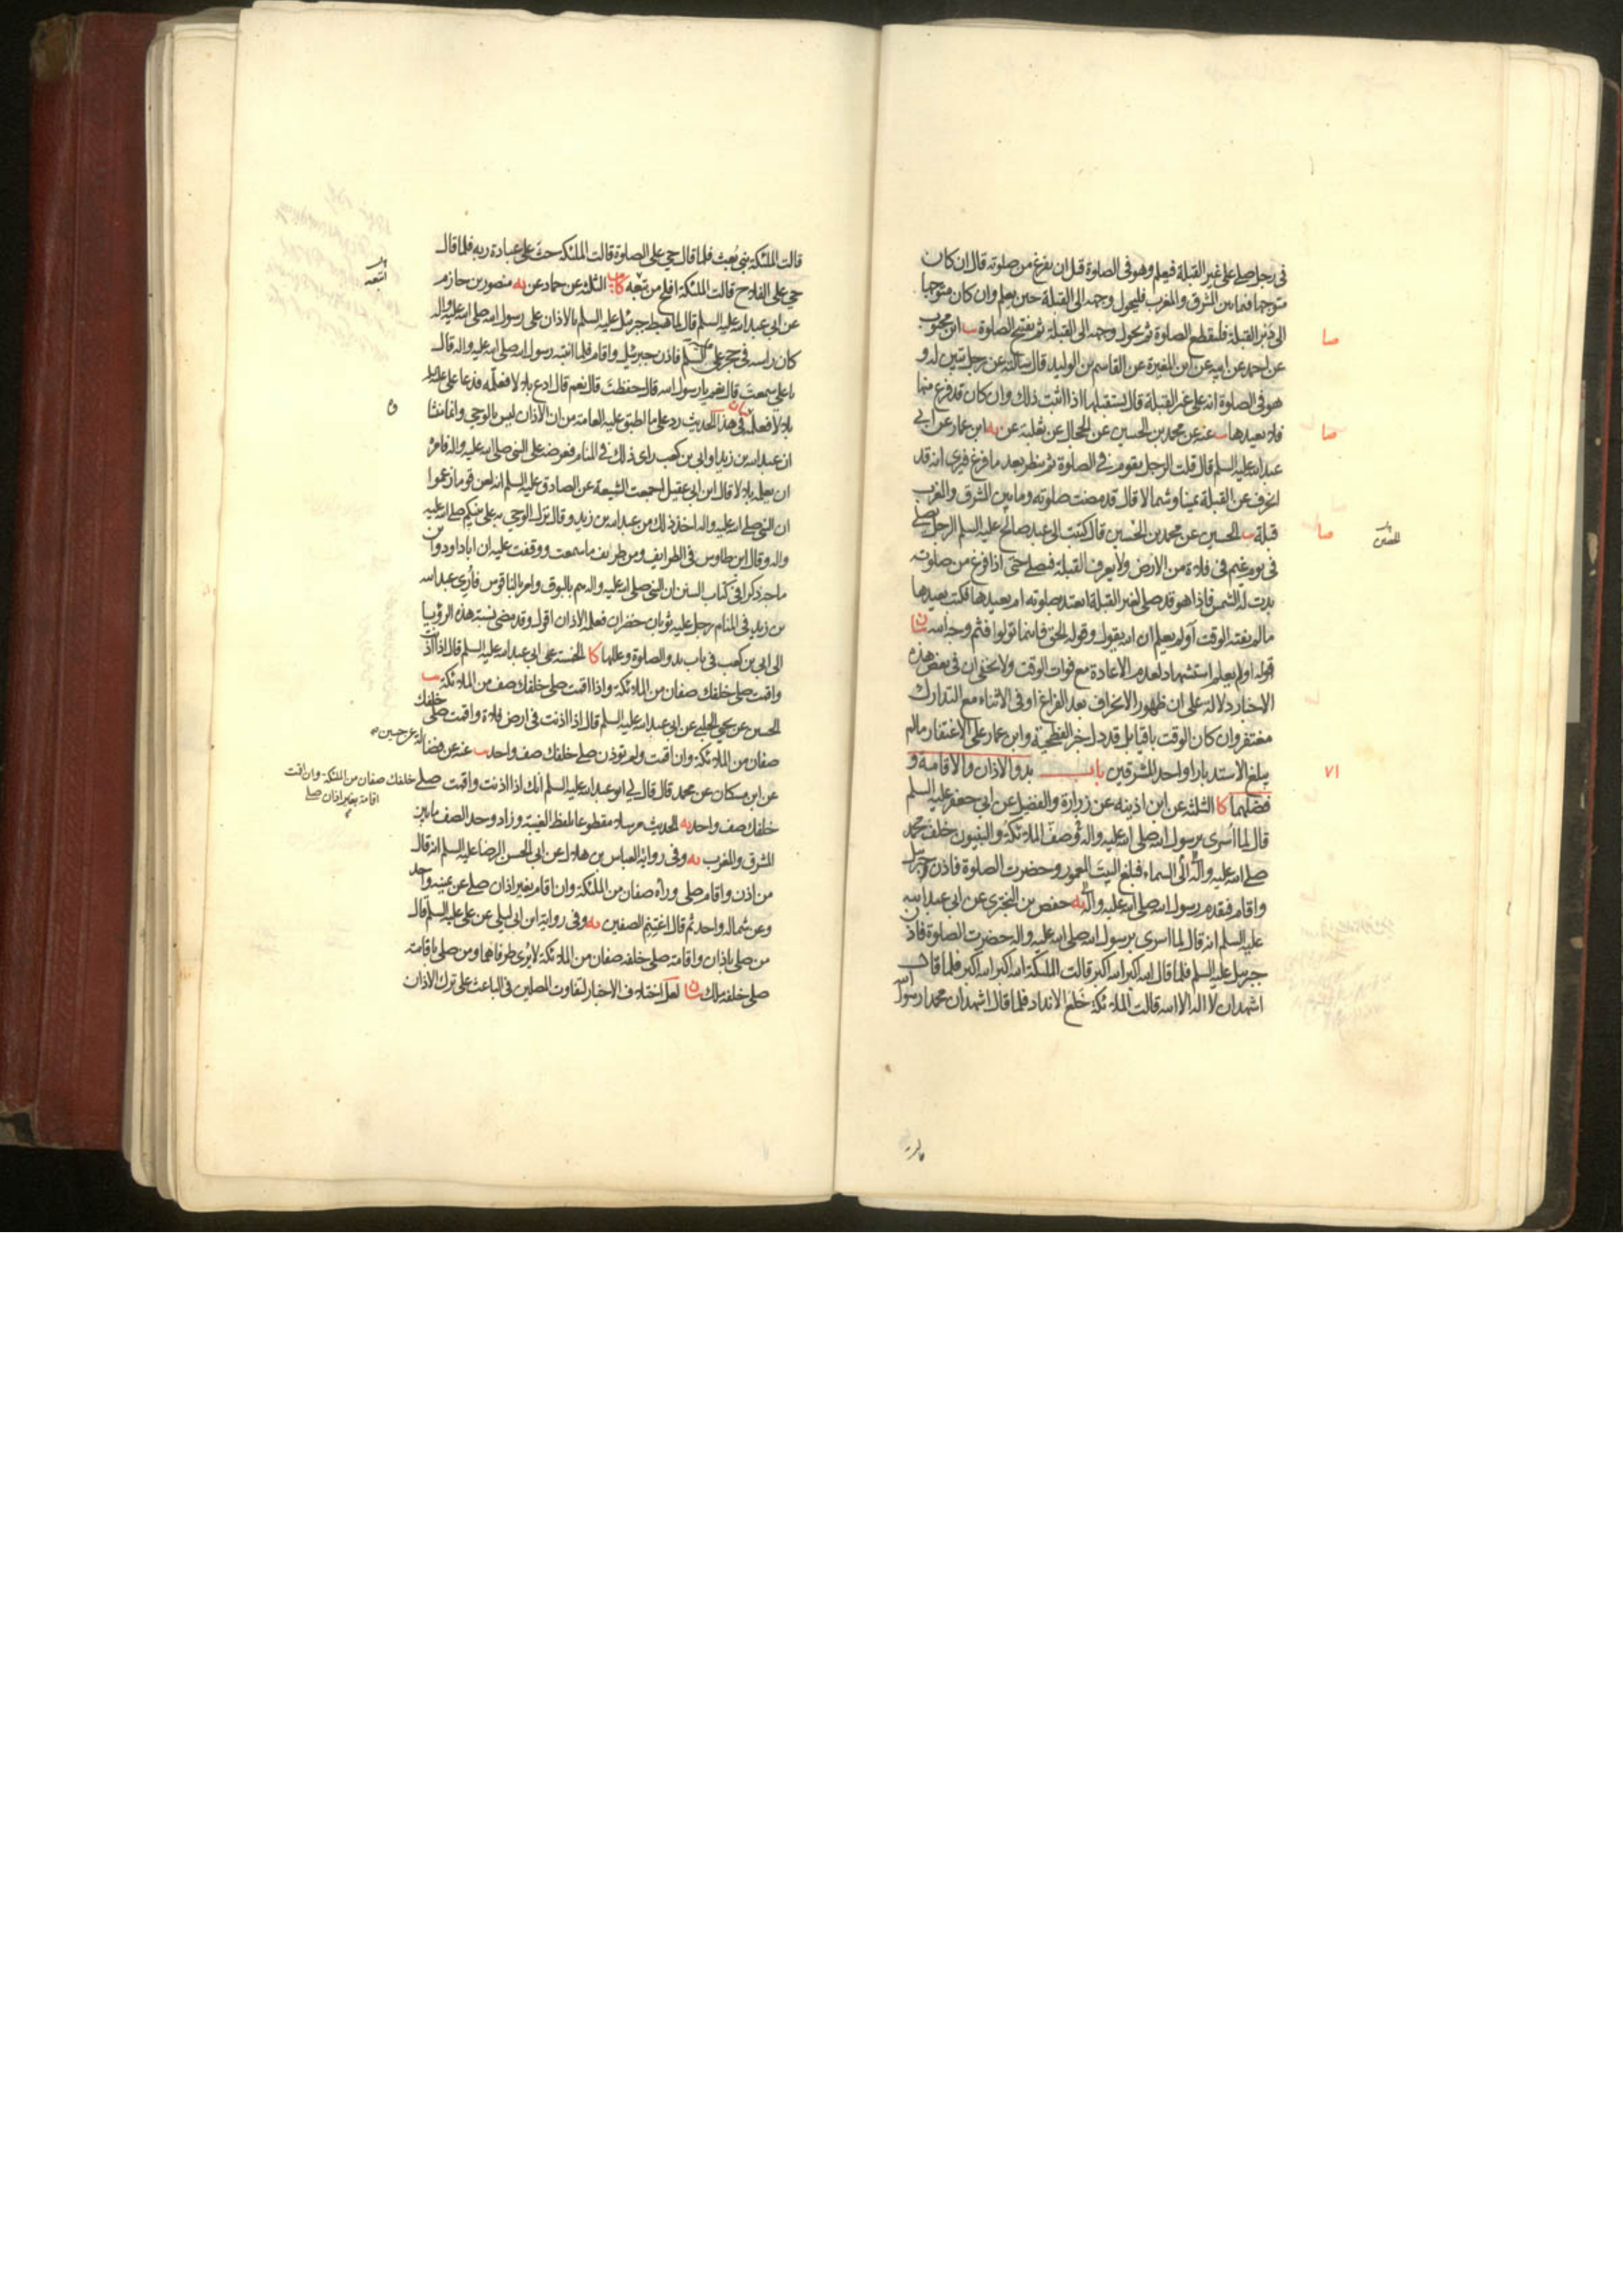 في رجل صلى على غير القبلة فيعلم وهو في الصلوة قبل ان يفرغ من صلوته قال ان كان
متوجها فيما بين المشرق والمغرب فليحول وجهه الى القبلة حين يعلم وان كان متوجها
الى دبر القبلة فليقطع الصلوة ثم يحول وجهه الى القبلة ثم يفتتح الصلوة يب ابن محبوب
صا
عن احمد عن ابيه عن ابن المغيرة عن القاسم بن الوليد قال سالته عن رجل تبين له و
هو في الصلوة انه على غير القبلة قال يستقبلها اذا اثبت ذلك وان كان قد فرغ منها
فلا يعيدها يب عنه عن محمد بن الحسين عن الحجال عن ثعلبة عن يه ابن عمار عن ابي
صا
عبد الله عليه السلم قال قلت الرجل يقوم في الصلوة ثم ينظر بعد ما فرغ فيرى انه قد
انحرف عن القبلة يمينا وشمالا قال قد مضت صلوته وما بين المشرق والمغرب
قبلة يب الحسين عن محمد بن الحسين قال كتبت الى عبد صالح عليه السلم الرجل يصلي
صا
الحصين
في يوم غيم في فلاة من الارض ولا يعرف القبلة فيصلي حتى اذا فرغ من صلوته
بدت له الشمس فاذا هو قد صلى لغير القبلة ايعتد بصلوته ام يعيدها فكتب يعيدها
ما لم يفته الوقت او لم يعلم ان الله يقول وقوله الحق فاينما تولوا فثم وجه الله بيان
قوله اولم يعلم استشهاد لعدم الاعادة مع فوات الوقت ولا يخفى ان في بعض هذه
الاخبار دلالة على ان ظهور الانحراف بعد الفراغ او في الاثناء مع التدارك
مغتفر وان كان الوقت باقيا بل قد دل خبر الفطحية وابن عمار على الاغتفار ما لم
يبلغ الاستدبار او احد المشرقين باب بدو الاذان والاقامة و
٧١
فضلهما كا الثلثة عن ابن اذينة عن زرارة والفضيل عن ابي جعفر عليه السلم
قال لما اسري برسول الله صلى الله عليه واله وصف الملائكة والنبيون خلف محمد
صلى الله عليه واله الى السماء فبلغ البيت المعمور وحضرت الصلوة فاذن جبرئيل
واقام فتقدم رسول الله صلى الله عليه واله يه حفص بن البختري عن ابي عبد الله
عليه السلم انه قال لما اسري برسول الله صلى الله عليه واله حضرت الصلوة فاذن
جبرئيل عليه السلم فلما قال الله اكبر الله اكبر قالت الملئكة الله اكبر الله اكبر فلما قال
اشهد ان لا اله الا الله قالت الملائكة خلع الانداد فلما قال اشهد ان محمدا رسول الله
قالت الملئكة نبي بعث فلما قال حي على الصلوة قالت الملئكة حث على عبادة ربه فلما قال
حي على الفلاح قالت الملئكة افلح من تبعه كا يب الثلثة عن حماد عن يه منصور بن حازم
اتبعه
عن ابي عبد الله عليه السلم قال لما هبط جبرئيل عليه السلم بالاذان على رسول الله صلى الله عليه واله
كان راسه في حجر علي عليه السلم فاذن جبرئيل واقام فلما انتبه رسول الله صلى الله عليه واله قال
يا علي سمعت قال نعم يا رسول الله قال حفظت قال نعم قال ادع بلالا فعلمه فدعا علي عليه السلم
بلالا فعلمه بيان في هذا الحديث رد على ما اطبق عليه العامة من ان الاذان ليس بالوحي وانما منشا
ان عبد الله بن زيد او ابي بن كعب راى ذلك في المنام فعرضه على النبي صلى الله عليه واله فامره
ان يعلمه بلالا قال ابن ابي عقيل اجمعت الشيعة عن الصادق عليه السلم انه لعن قوما زعموا
ان النبي صلى الله عليه واله اخذ ذلك من عبد الله بن زيد وقال نزل الوحي به على نبيكم صلى الله عليه
واله وقال ابن طاوس في الطرايف ومن طريف ما سمعت ووقفت عليه ان ابا داود وابن
ماجه ذكرا في كتاب السنن ان النبي صلى الله عليه واله هم بالبوق وامر بالناقوس فاري عبد الله
بن زيد في المنام رجل عليه ثوبان خضران فعلمه الاذان اقول وقد مضى نسبة هذه الرؤيا
الى ابي بن كعب في باب بدو الصلوة وعللها كا الخمسة عن ابي عبد الله عليه السلم قال اذا اذنت
واقمت صلى خلفك صفان من الملائكة واذا اقمت صلى خلفك صف من الملائكة يب
الحسين عن يحيى الحلبي عن ابي عبد الله عليه السلم قال اذا اذنت في ارض فلاة واقمت صلى خلفك
صفان من الملائكة وان اقمت ولم تؤذن صلى خلفك صف واحد يب عنه عن فضالة عن حسين
عن ابن مسكان عن محمد قال قال لي ابو عبد الله عليه السلم انك اذا اذنت واقمت صلى خلفك صفان من الملئكة وان اقمت
اقامة بغير اذان صلى
خلفك صف واحد يه الحديث مرسلا مقطوعا بلفظ الغيبة وزاد وحد الصف ما بين
المشرق والمغرب يه وفي رواية العباس بن هلال عن ابي الحسن الرضا عليه السلم انه قال
من اذن واقام صلى وراه صفان من الملئكة وان اقام بغير اذان صلى عن يمينه واحد
وعن شماله واحد ثم قال اغتنم الصفين يه وفي رواية ابن ابي ليلى عن علي عليه السلم قال
من صلى باذان واقامة صلى خلفه صفان من الملائكة لا يرى طرفاهما ومن صلى باقامة
صلى خلفه ملك بيان لعل اختلاف الاخبار لتفاوت المصلين في الباعث على ترك الاذان